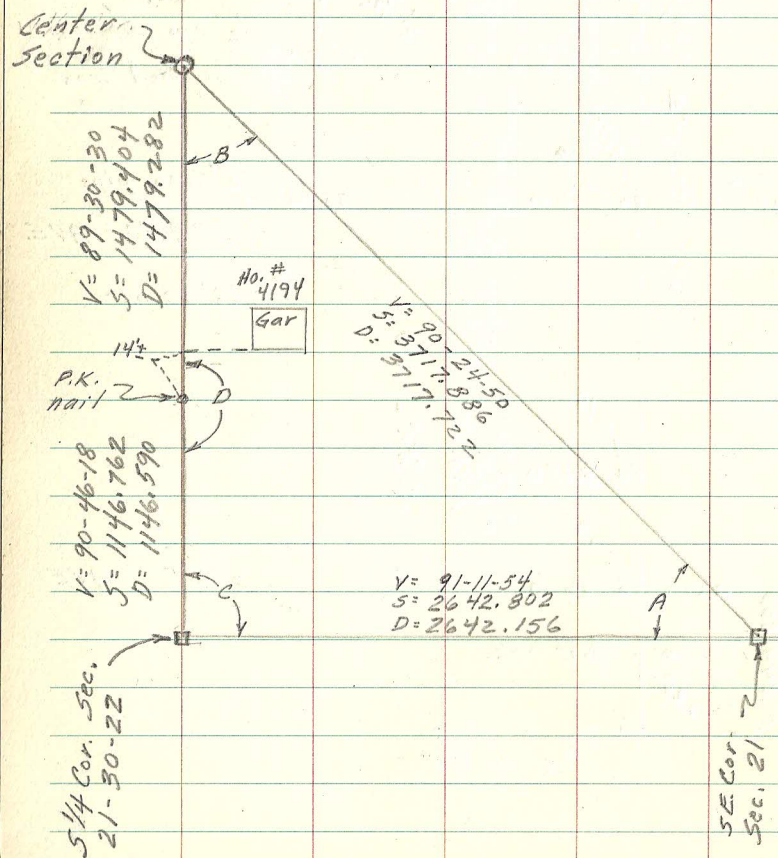 Center
Section
B
V= 89-30-30
S= 1479.404
D= 1479.282
Ho. #
4194
Gar
14'±
P.K.
nail
D
V= 90-24-50
S= 3717.886
D= 3717.727
V= 90-46-18
S= 1146.762
D= 1146.590
C
V= 91-11-54
S= 2642.802
D= 2642.156
A
S 1/4 Cor. Sec.
21-30-22
SE. Cor
Sec. 21